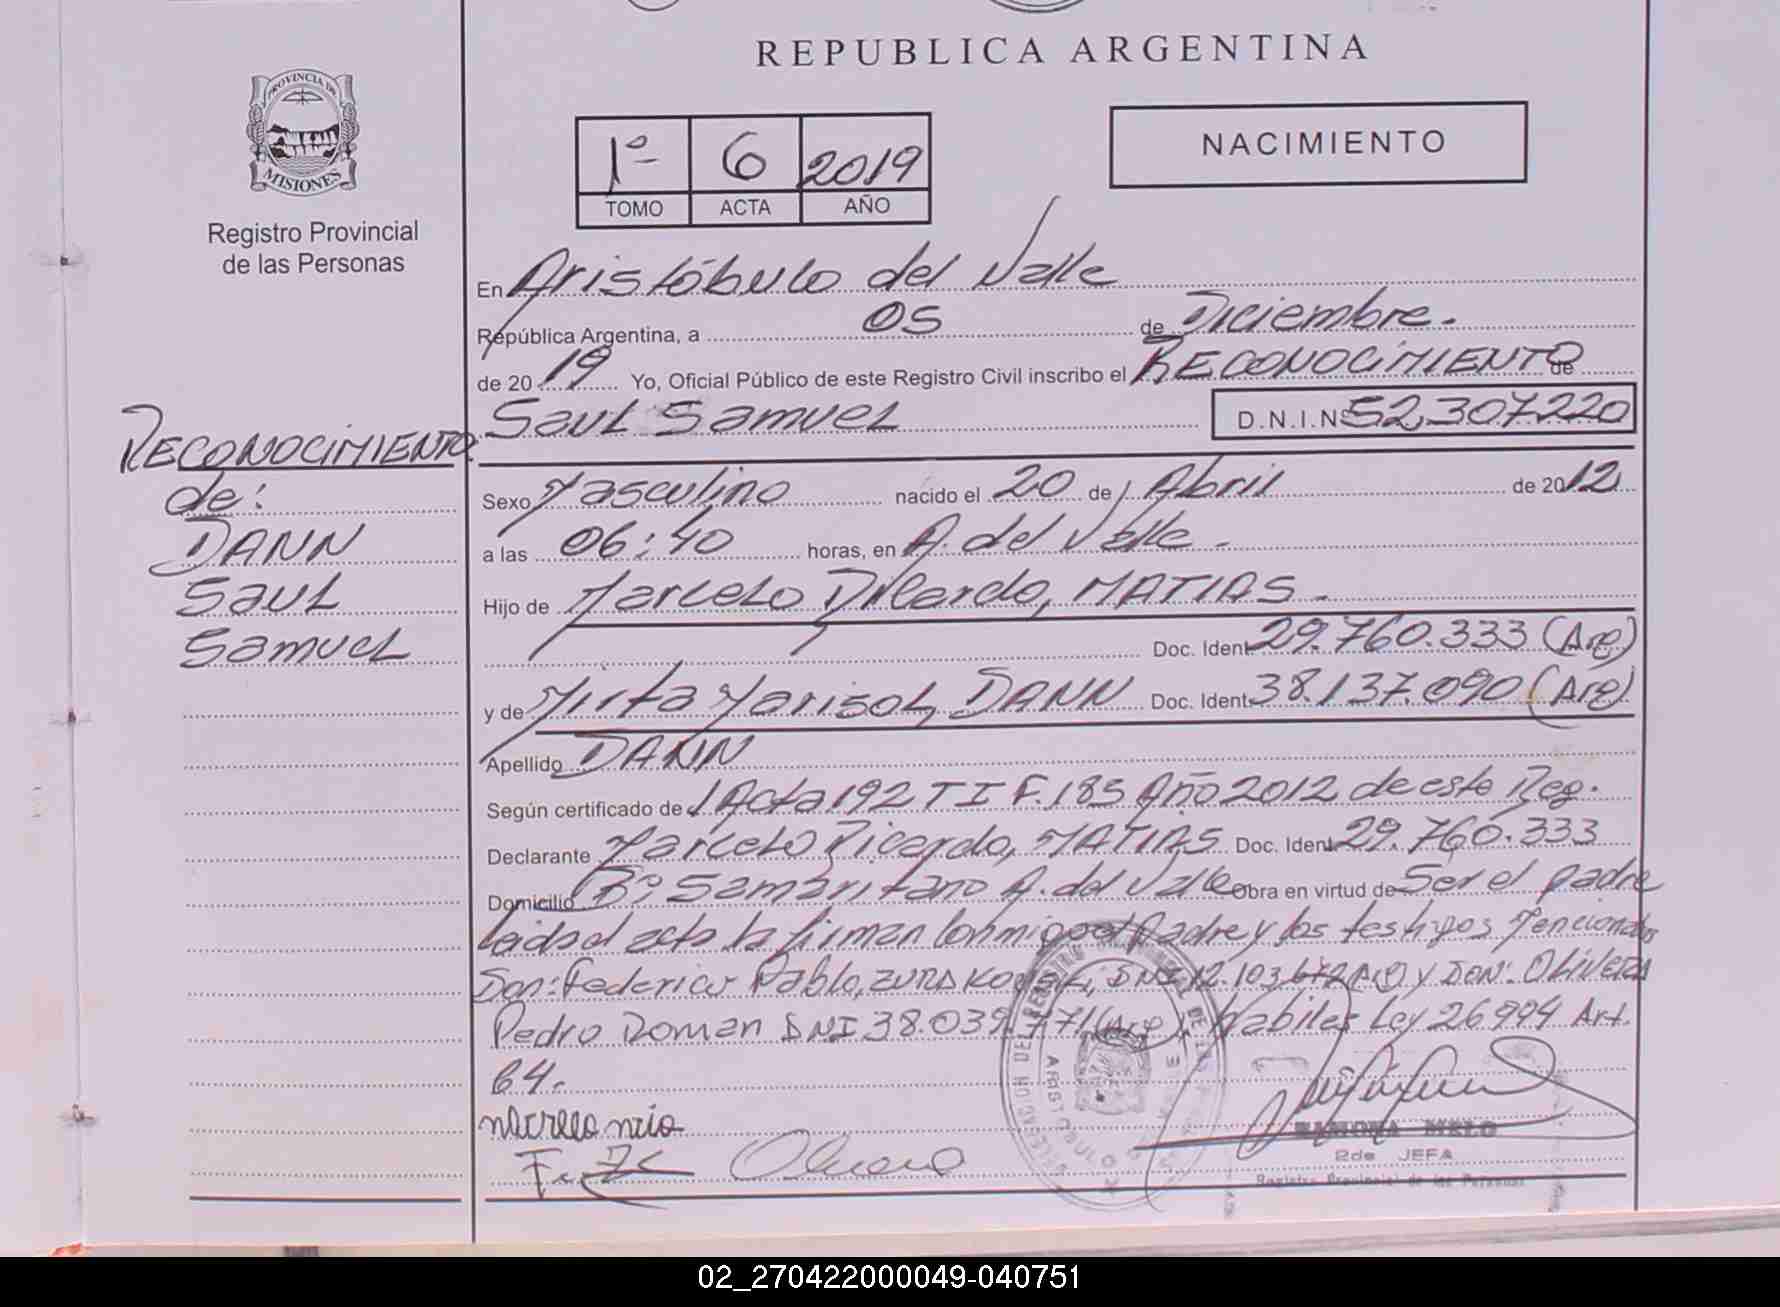 REPUBLICA ARGENTINA
PROVINCIA DE
MISIONES
Registro Provincial
de las Personas
1º 6 2019
TOMO ACTA AÑO
NACIMIENTO
En Aristóbulo del Valle
República Argentina, a 05 de Diciembre.
de 2019 Yo, Oficial Público de este Registro Civil inscribo el RECONOCIMIENTO de
Saul Samuel D.N.I.Nº 52.307.220
RECONOCIMIENTO
de:
DANN
Saul
Samuel
Sexo Masculino nacido el 20 de Abril de 2012
a las 06:40 horas, en A. del Valle.
Hijo de Marcelo Ricardo, MATIAS.
Doc. Ident 29.760.333 (Arg)
y de Mirta Marisol, DANN Doc. Ident 38.137.090 (Arg)
Apellido DANN
Según certificado de Acta 192 T I F. 185 Año 2012 de este Reg.
Declarante Marcelo Ricardo, MATIAS Doc. Ident 29.760.333
Domicilio Bº Samaritano A. del Valle Obra en virtud de Ser el padre
Leida el acta la firman conmigo el Padre y los testigos Mencionados
Don: Federico Pablo, DNI 12.103.672 (Arg) y DON: OLIVERA
Pedro Roman DNI 38.039.771 (Arg). Habiles Ley 26994 Art.
64.
RAMONA MELO
2da JEFA
Registro Provincial de las Personas
02_270422000049-040751